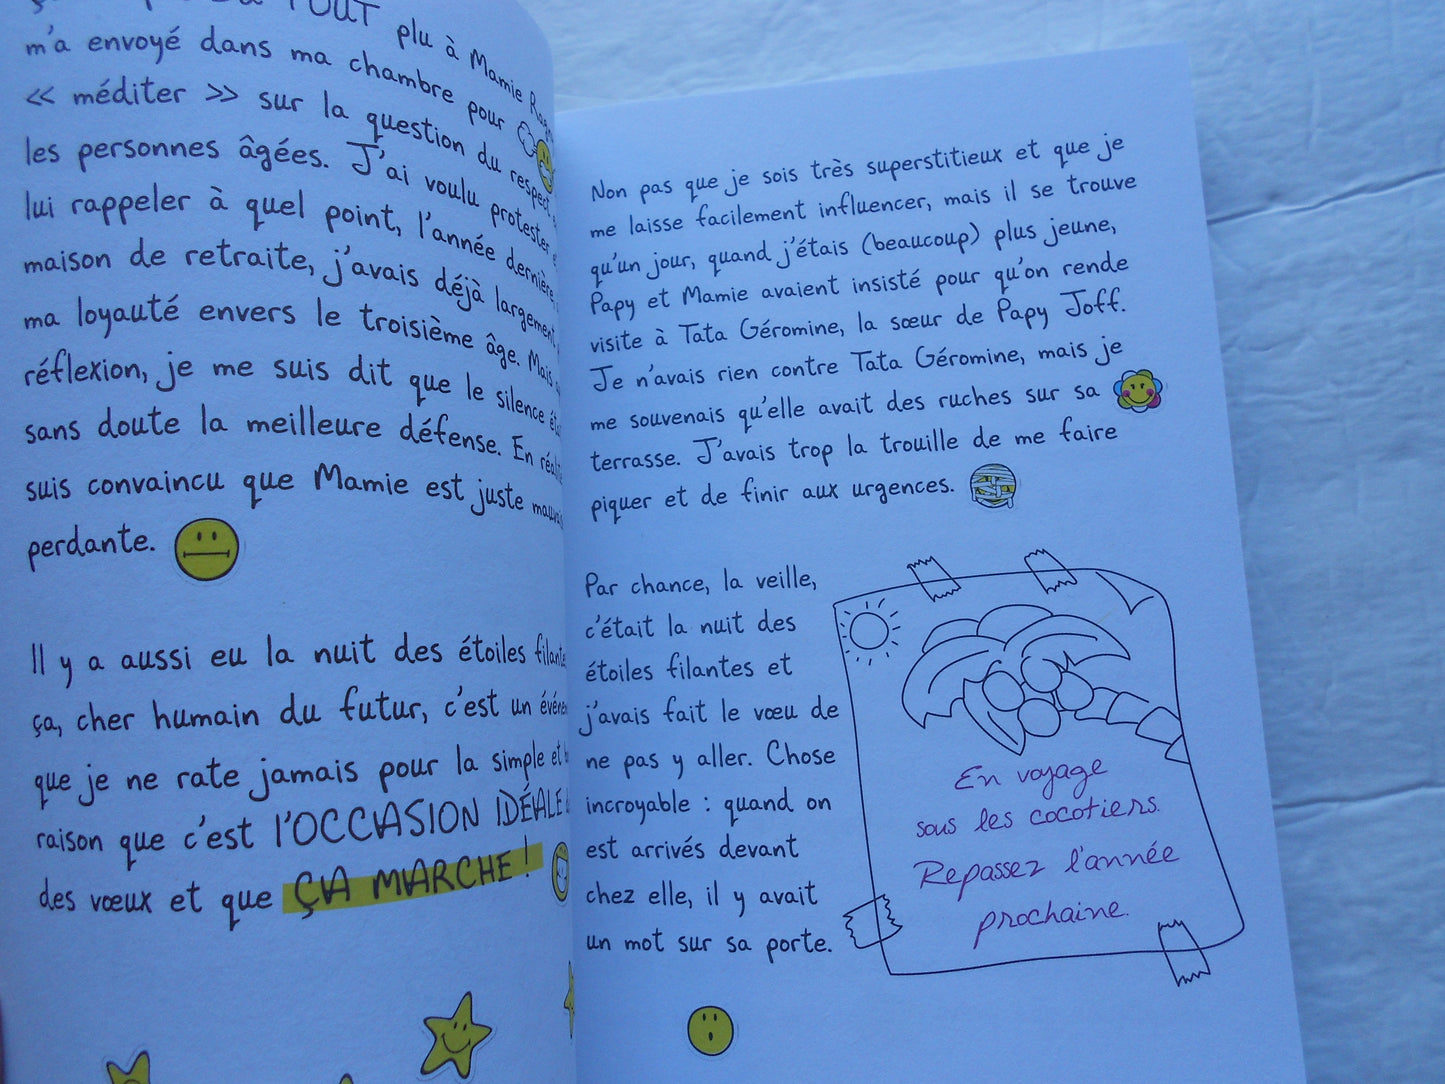 TOUT plu à Mamie
m'a envoyé dans ma chambre pour
« méditer » sur la question du respect
les personnes âgées. J'ai voulu protester
lui rappeler à quel point, l'année dernière,
maison de retraite, j'avais déjà largement
ma loyauté envers le troisième âge. Mais
réflexion, je me suis dit que le silence
sans doute la meilleure défense. En
suis convaincu que Mamie est juste
perdante.
Il y a aussi eu la nuit des étoiles
ça, cher humain du futur, c'est un
que je ne rate jamais pour la simple et
raison que c'est l'OCCASION IDÉALE
des vœux et que ÇA MARCHE !
Non pas que je sois très superstitieux et que je
me laisse facilement influencer, mais il se trouve
qu'un jour, quand j'étais (beaucoup) plus jeune,
Papy et Mamie avaient insisté pour qu'on rende
visite à Tata Géromine, la sœur de Papy Joff.
Je n'avais rien contre Tata Géromine, mais je
me souvenais qu'elle avait des ruches sur sa
terrasse. J'avais trop la trouille de me faire
piquer et de finir aux urgences.
Par chance, la veille,
c'était la nuit des
étoiles filantes et
j'avais fait le vœu de
ne pas y aller. Chose
incroyable : quand on
est arrivés devant
chez elle, il y avait
un mot sur sa porte.
En voyage
sous les cocotiers.
Repassez l'année
prochaine.